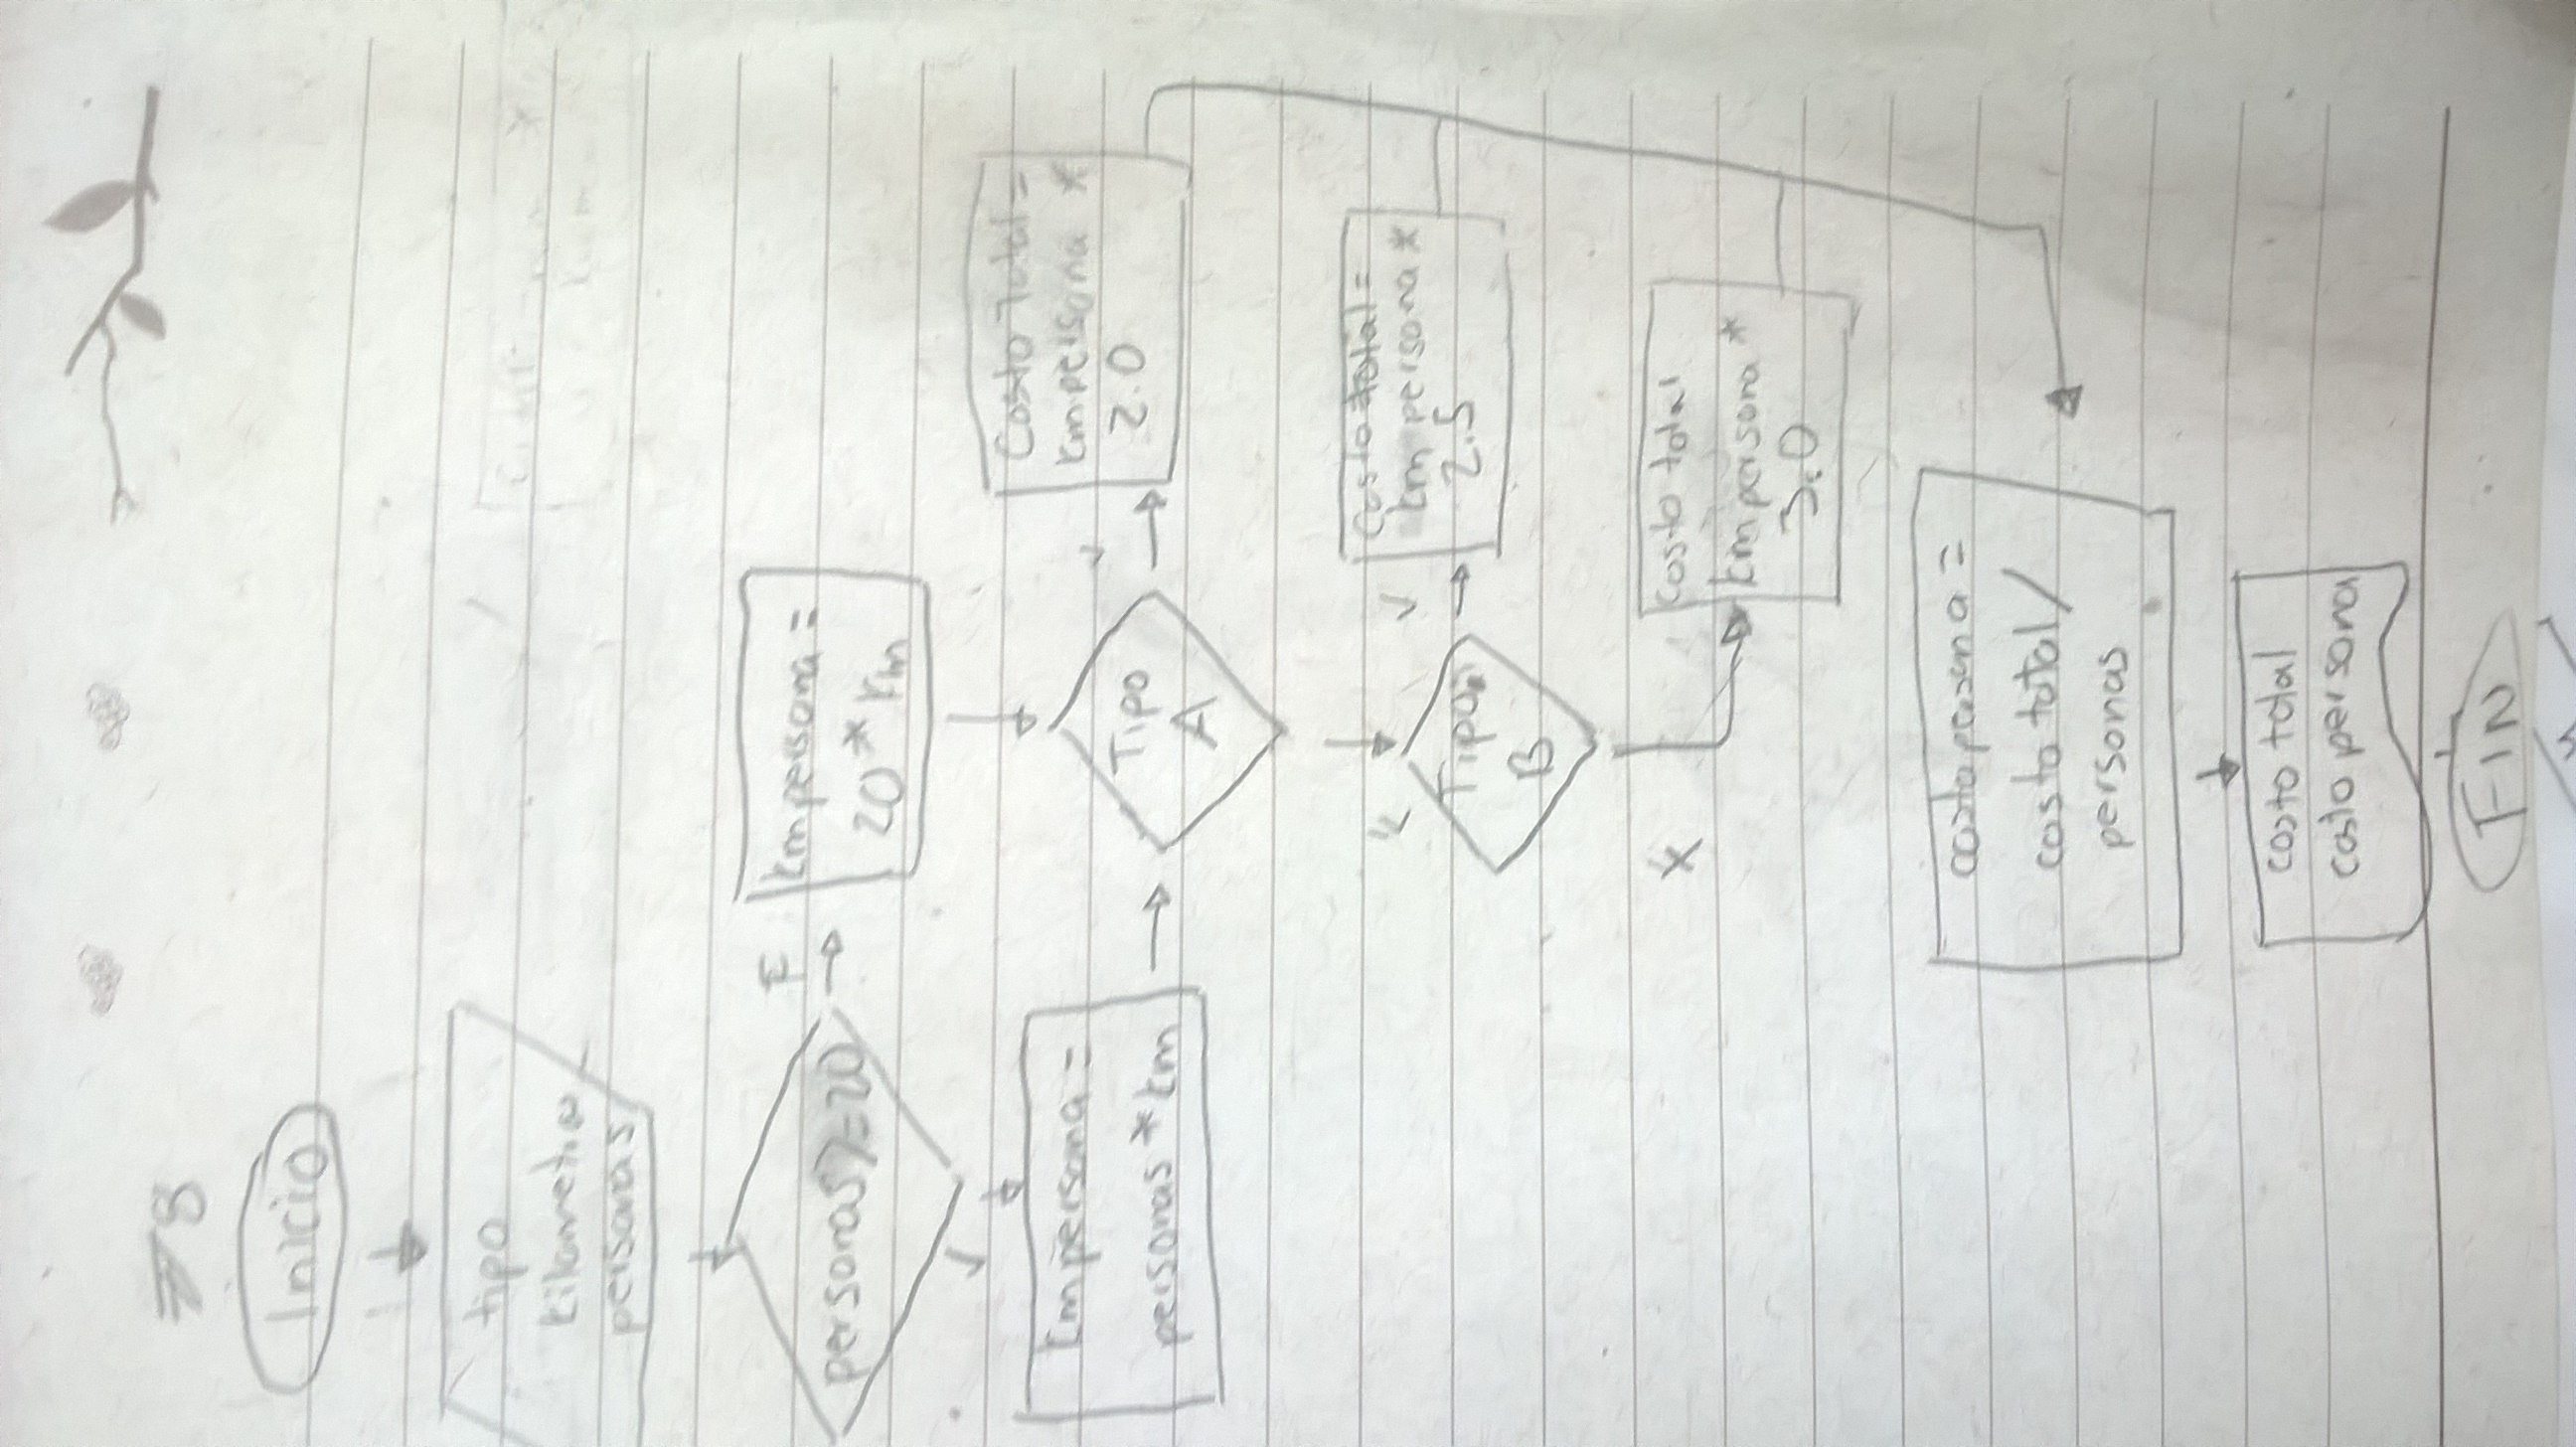 #8
Inicio
tipo
kilometros
personas
personas>=20
F
V
kmpersona =
20 * km
kmpersona =
personas * km
Tipo
A
V
Costo total =
kmpersona *
2.0
Tipo
B
V
Costo total =
km persona *
2.5
costo total
km persona *
3.0
costopersona =
costo total/
personas
costo total
costo persona
FIN